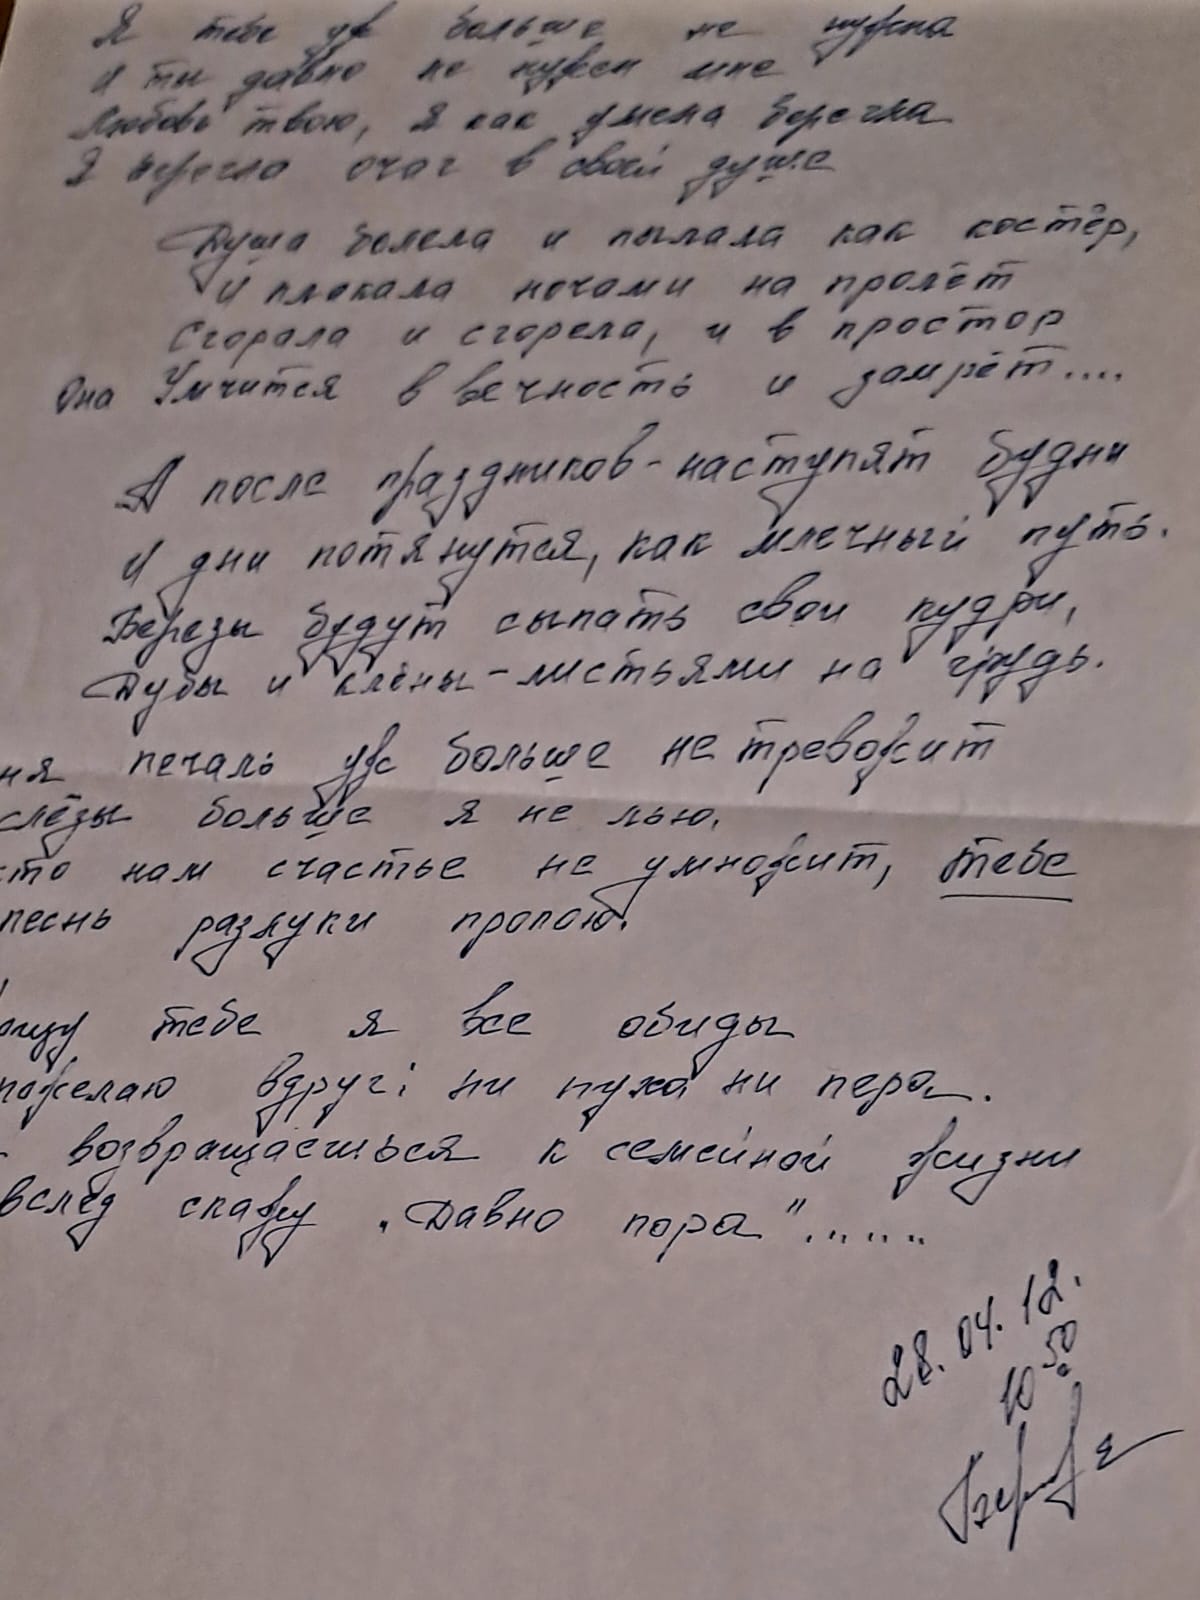 Я тебе уж больше не нужна
И ты давно не нужен мне
Любовь твою, я как умела берегла
Я берегла очаг в своей душе
Душа болела и пылала как костёр,
И плакала ночами на пролёт
Сгорала и сгорела, и в простор
Она Умчится в вечность и замрёт....
А после праздников - наступят будни
И дни потянутся, как млечный путь.
Березы будут сыпать свои кудри,
Дубы и клёны - листьями на грудь.
ня печаль уж больше не тревожит
слёзы больше я не лью.
кто нам счастье не умножит, тебе
песнь разлуки пропою.
ощу тебе я все обиды
пожелаю вдруг: ни пуха ни пера.
возвращаешься к семейной жизни
вслед скажу "Давно пора"......
28.04.12.
10 50